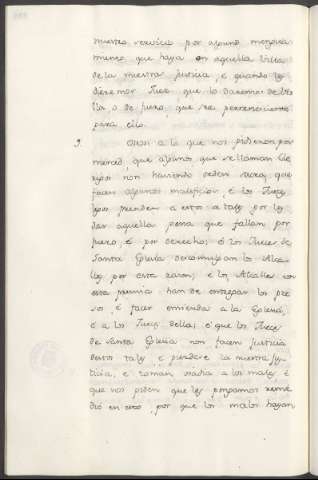 nuestro servicio por alguno menoscabo
miento que haya en aquella Villa
de la nuestra justicia, e quando les
dieremos Juez que lo daremos de Vi-
lla, o de fuero, que sea perteneciente
para ello.
9. Otrosi a lo que nos pidieron por
merced, que algunos que se llaman Cle
rigos non haviendo orden sacra, que
facen algunos maleficios, e los Jueces
legos prenden a estos a tales por les
dar aquella pena que fallan por
fuero, e por derecho; e los Jueces de
Santa Iglesia descomulgan los Alca-
lles por esta razon; e los Alcalles con
esta premia han de entregar los pre
sos, e facer emienda a la Iglesia,
e a los Jueces della; e que los Jueces
de Santa Iglesia non facen justicia
destos tales e pierdese la nuestra Jus
ticia, e toman osadia a los males, e
que nos piden que les pongamos reme
dio en esto, por que los malos hayan